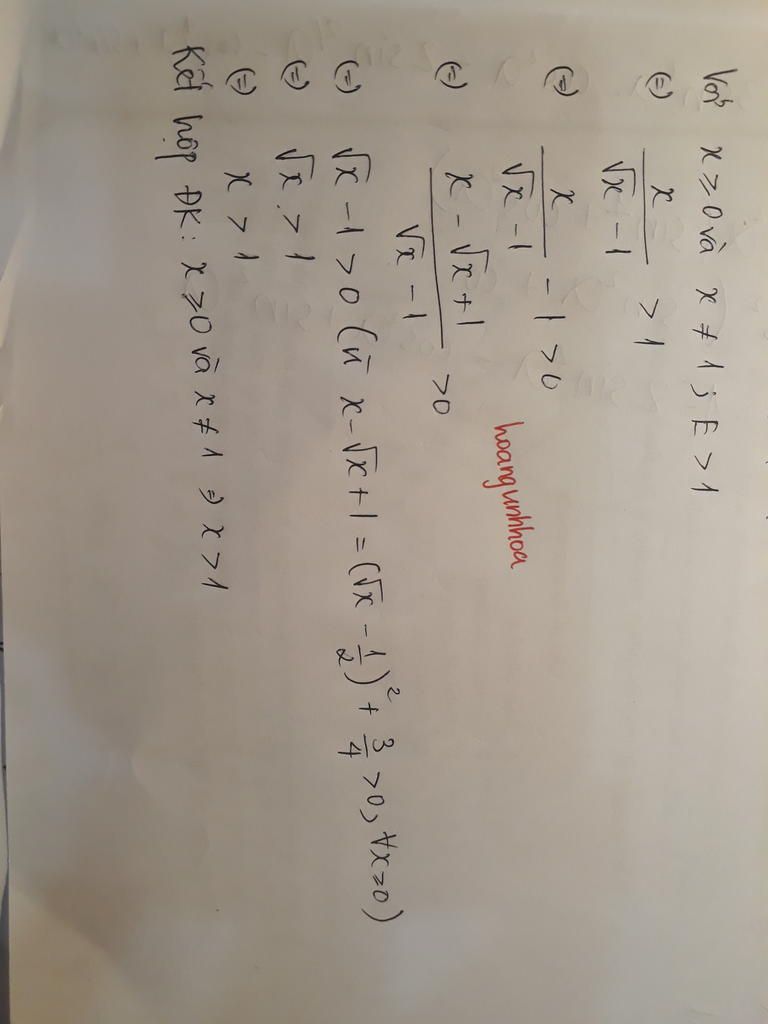 Với x ≥ 0 và x ≠ 1 ; E > 1
(=) x / (√x - 1) > 1
(=) x / (√x - 1) - 1 > 0
(=) (x - √x + 1) / (√x - 1) > 0
hoangunhhoa
(=) √x - 1 > 0 (vì x - √x + 1 = (√x - 1/2)² + 3/4 > 0, ∀x ≥ 0)
(=) √x > 1
(=) x > 1
Kết hợp ĐK: x ≥ 0 và x ≠ 1 => x > 1